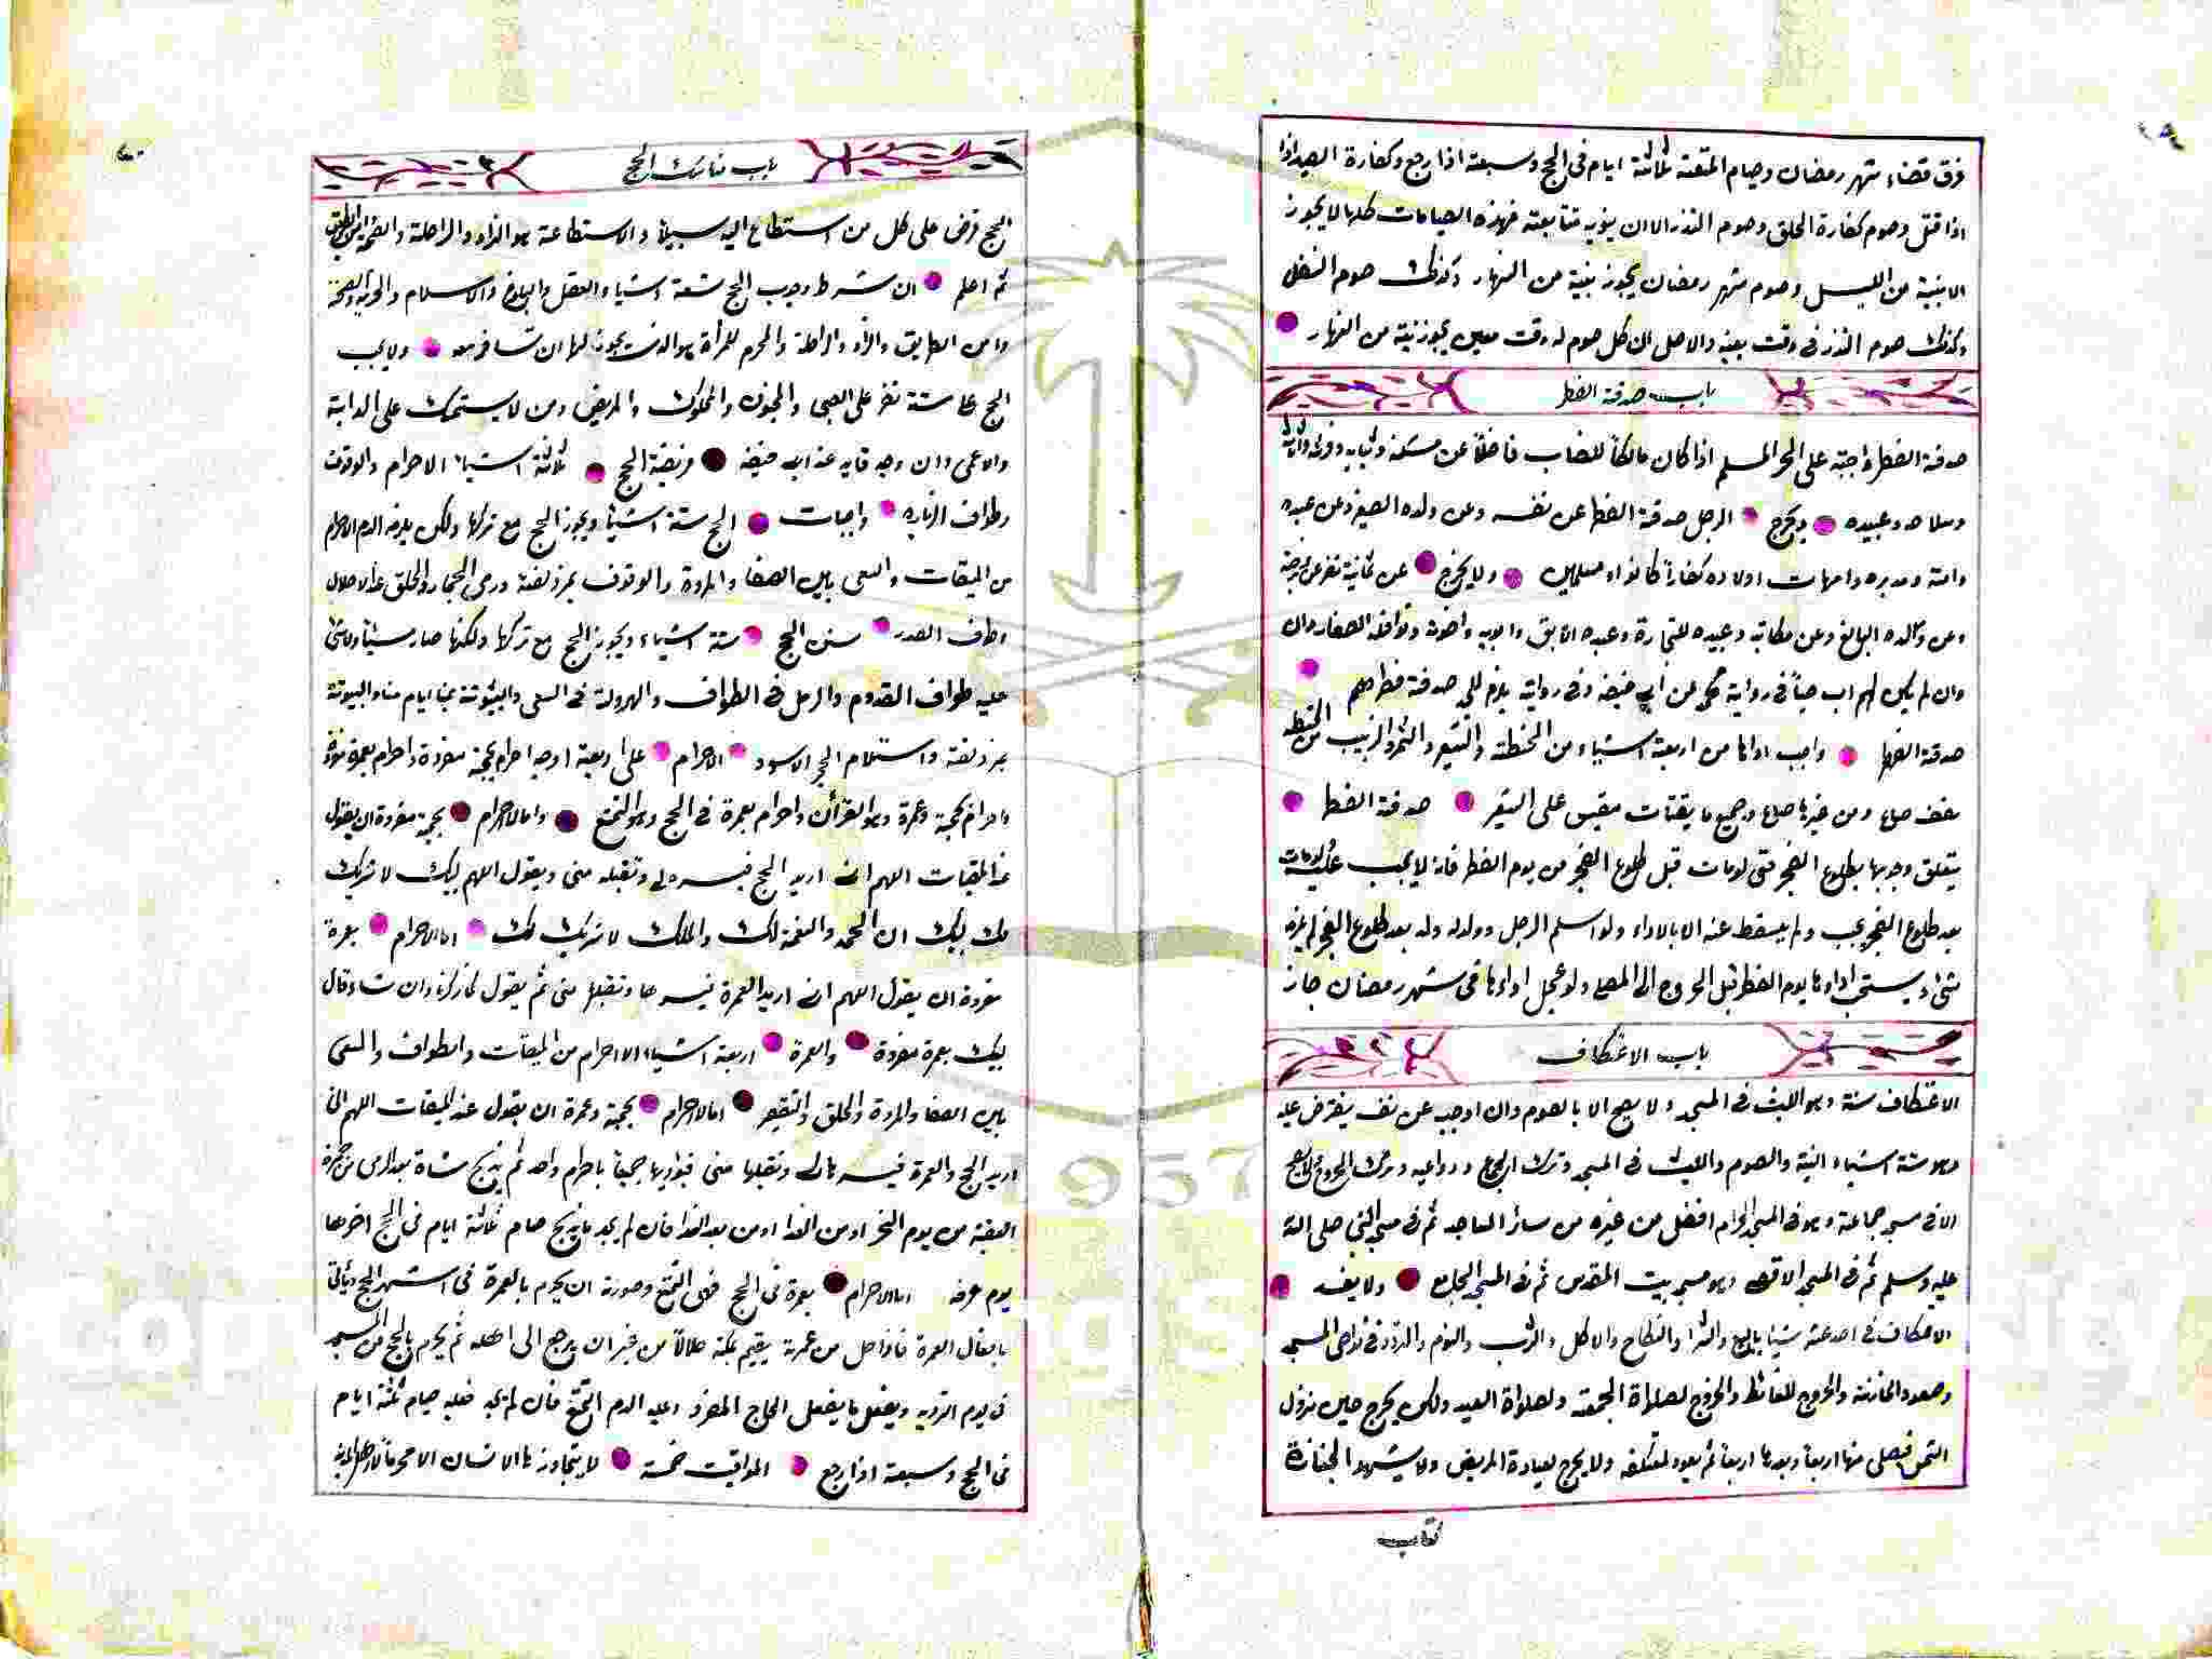 فرق قضاء شهر رمضان وصيام المتعة ثلاثة ايام فى الحج وسبعة اذا رجع وكفارة الصيد اذا
اذا قتل وصوم كفارة الحلق وصوم النذر الا ان ينويه متتابعة فهذه الصيامات كلها لا يجوز
الا بنية من الليل وصوم شهر رمضان يجوز بنية من النهار وكذلك صوم النفل
وكذلك صوم النذر فى وقت بعينه والاصل ان كل صوم له وقت معين يجوز بنية من النهار
باب صدقة الفطر
صدقة الفطر واجبة على الحر المسلم اذا كان مالكا للنصاب فاضلا عن مسكنه وثيابه وفرسه واثاثه
وسلاحه وعبيده ويخرج الرجل صدقة الفطر عن نفسه وعن ولده الصغير وعن عبده
وامته ومدبره وامهات اولاده كفارا كانوا او مسلمين ولا يخرج عن ثمانية نفر عن زوجته
وعن والده البالغ وعن مكاتبه وعبيده للتجارة وعبده الابق وابويه واخوته ونوافله الصغار وان
وان لم يكن لهم اب حيا فى رواية محمد عن ابى حنيفة وفى رواية يلزم للجد صدقة فطرهم
صدقة الفطر واجب اداؤها من اربعة اشياء من الحنطة والشعير والتمر والزبيب من الحنطة
نصف صاع ومن غيرها صاع وجميع ما يقتات مقيس على الشعير صدقة الفطر
يتعلق وجوبها بطلوع الفجر حتى لو مات قبل طلوع الفجر من يوم الفطر فانه لا يجب عليه ولو مات
بعد طلوع الفجر يجب ولم يسقط عنه الا بالاداء ولو اسلم الرجل وولد له ولد بعد طلوع الفجر لم يلزمه
شئ ويستحب اداؤها يوم الفطر قبل الخروج الى المصلى ولو عجل اداؤها فى شهر رمضان جاز
باب الاعتكاف
الاعتكاف سنة وهو اللبث فى المسجد ولا يصح الا بالصوم وان اوجب عن نفسه يفترض عليه
وهو ستة اشياء النية والصوم واللبث فى المسجد وترك الجماع ودواعيه وترك الخروج ولا يصح
الا فى مسجد جماعة وهو فى المسجد الحرام افضل من غيره من سائر المساجد ثم فى مسجد النبى صلى الله
عليه وسلم ثم فى المسجد الاقصى وهو مسجد بيت المقدس ثم فى المسجد الجامع ولا يفسد
الاعتكاف فى احد عشر شيئا بالبيع والشرا والنكاح والاكل والشرب والنوم والتردد فى نواحى المسجد
وصعود المأذنة والخروج للغائط والخروج لصلاة الجمعة ولصلواة العيد ولكن يخرج حين نزول
الشمس فيصلى منها اربعا وبعدها اربعا ثم يعود لمعتكفه ولا يخرج لعيادة المريض ولا يشهد الجنازة
كتاب
باب مناسك الحج
الحج فرض على كل من استطاع اليه سبيلا والاستطاعة هو الزاد والراحلة والصحة وامن الطريق
ثم اعلم ان شرط وجوب الحج تسعة اشياء العقل والبلوغ والاسلام والحرية والصحة
وامن الطريق والزاد والراحلة والمحرم للمرأة هو الذى يجوز لها ان تسافر معه ولا يجب
الحج على ستة نفر على الصبى والمجنون والمملوك والمريض ومن لا يستمسك على الدابة
والاعمى وان وجد قايد عند ابى حنيفة فريضة الحج ثلاثة اشياء الاحرام والوقوف
وطواف الزياره واجبات الحج ستة اشياء ويجوز الحج مع تركها ولكن يلزمه الدم الاحرام
من الميقات والسعى بين الصفا والمروة والوقوف بمزدلفة ورمى الجمار والحلق عند الاحلال
وطواف الصدر سنن الحج ستة اشياء ويجوز الحج مع تركها ولكنها صار مسيئا ولا شئ
عليه طواف القدوم والرمل فى الطواف والهرولة فى السعى والبيتوتة بمنا ايام منا والبيتوتة
بمزدلفة واستلام الحجر الاسود الاحرام على اربعة اوجه احرام بحجة مفردة واحرام بعمرة مفردة
واحرام بحجة وعمرة وهو القرآن واحرام بعمرة فى الحج وهو التمتع واما الاحرام بحجة مفردة ان يقول
عند الميقات اللهم انى اريد الحج فيسره لى وتقبله منى ويقول اللهم لبيك لا شريك
لك لبيك ان الحمد والنعمة لك والملك لا شريك لك اما الاحرام بعمرة
مفردة ان يقول اللهم انى اريد العمرة فيسرها وتقبلها منى ثم يقول كما ذكرنا وان شاء قال
لبيك بعمرة مفردة والعمرة اربعة اشياء الاحرام من الميقات والطواف والسعى
بين الصفا والمروة والحلق والتقصير اما الاحرام بحجة وعمرة ان يقول عند الميقات اللهم انى
اريد الحج والعمرة فيسرهما لى وتقبلها منى فيؤديها جميعا باحرام واحد ثم يذبح شاة بعد الرمى من جمرة
العقبة من يوم النحر او من الغد او من بعد الغد فان لم يجد ما يذبح صام ثلاثة ايام فى الحج اخرها
يوم عرفه اما الاحرام بعمرة فى الحج فهى التمتع وصورته ان يحرم بالعمرة فى اشهر الحج ويأتى
بافعال العمرة فاذا حل من عمرته يقيم بمكة حلالا من غير ان يرجع الى اهله ثم يحرم بالحج من المسجد
فى يوم التروية ويفعل ما يفعل الحاج المفرد وعليه الدم التمتع فان لم يجد فعليه صيام ثلثة ايام
فى الحج وسبعة اذا رجع المواقيت خمسة لا يتجاوزها الانسان الا محرما لاهل المدينة